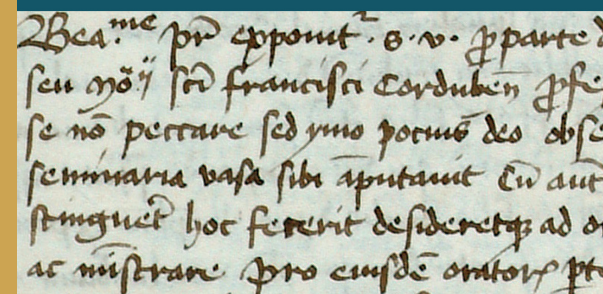 Bea.me pr̄ exponit͛ . s . v . ꝑparte d
seu mōij sc̄i francisci Cordubeñ ꝓfe
se nō peccare sed ymo pocius deo obse
seminaria vasa sibi āputauit Cū aut
stinguer̄t hoc fecerit desideretqꝫ ad or
ac mīstrare pro eiusdē oratorꝭ ꝑte